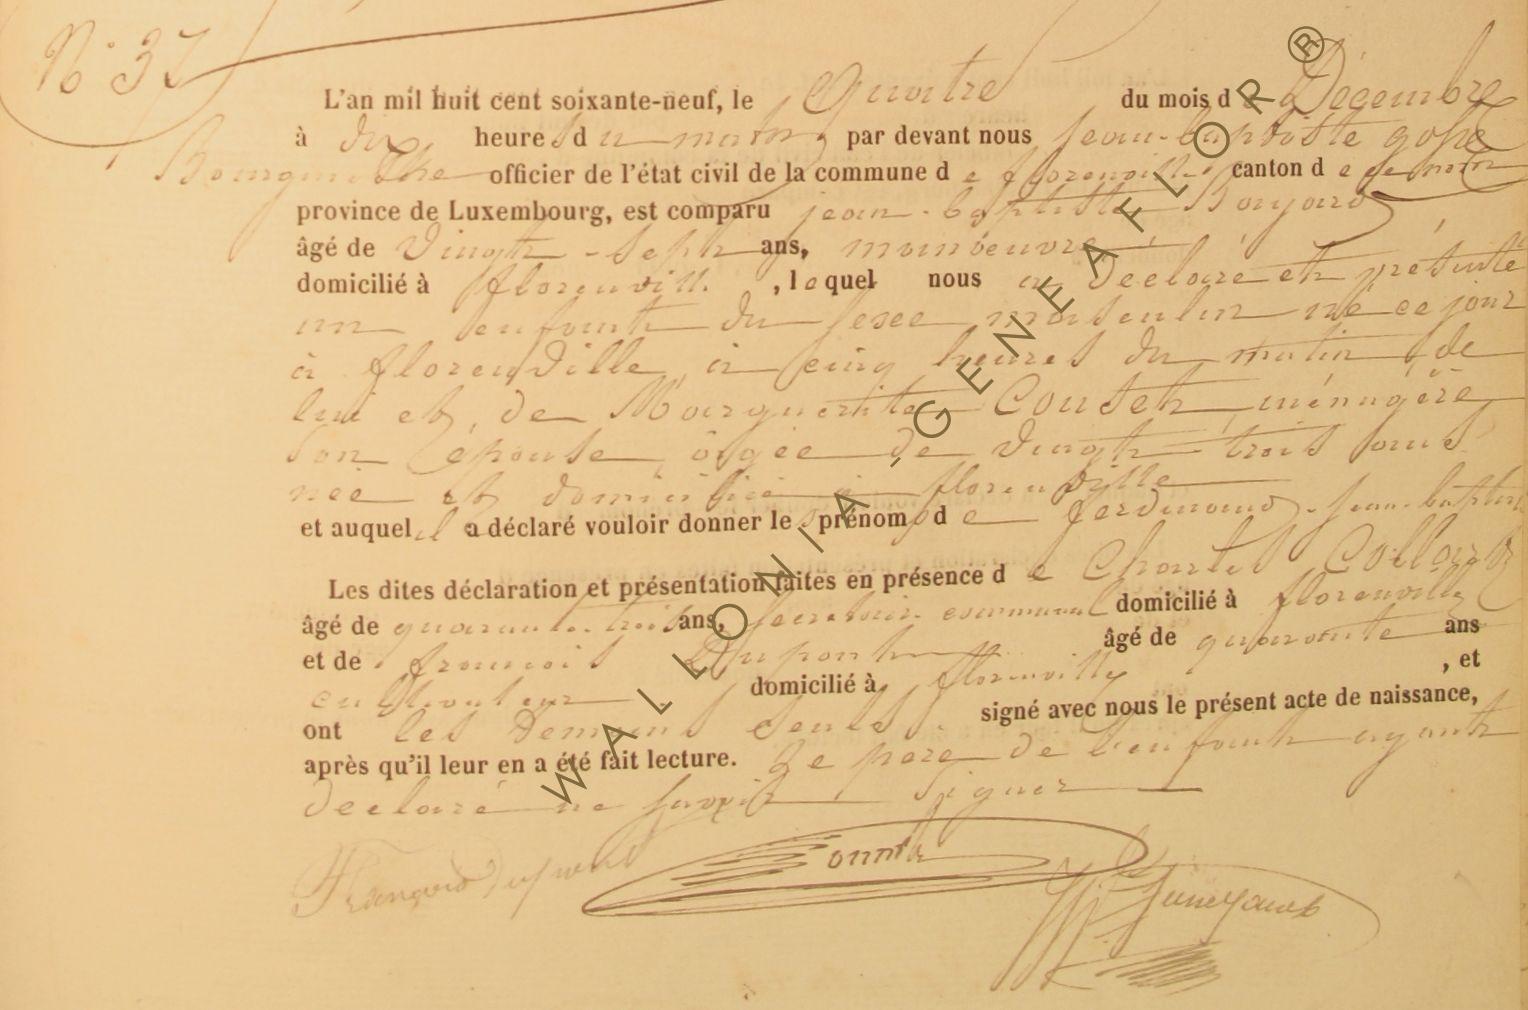 N° 37
L'an mil huit cent soixante-neuf, le Quatre du mois de Décembre
à dix heures du matin, par devant nous jean-baptiste
officier de l'état civil de la commune de florenville canton de
province de Luxembourg, est comparu jean-baptiste
âgé de vingt-sept ans, manoeuvre
domicilié à florenville, lequel nous a déclaré et présenté
un enfant du sexe masculin né ce jour
à florenville, à cinq heures du matin, de
lui et de Marguerite ménagère
son épouse âgée de vingt trois ans
née et domiciliée à florenville
et auquel il a déclaré vouloir donner les prénoms de ferdinand-jean-baptiste
Les dites déclaration et présentation faites en présence de Charles
âgé de quarante-trois ans, secrétaire communal domicilié à florenville
et de françois Dupont âgé de quarante ans
cultivateur domicilié à florenville, et
ont les temoins seuls signé avec nous le présent acte de naissance,
après qu'il leur en a été fait lecture. Le père de l'enfant ayant
déclaré ne savoir signer
François Dupont
WALLONIA-GENEAFLOR®